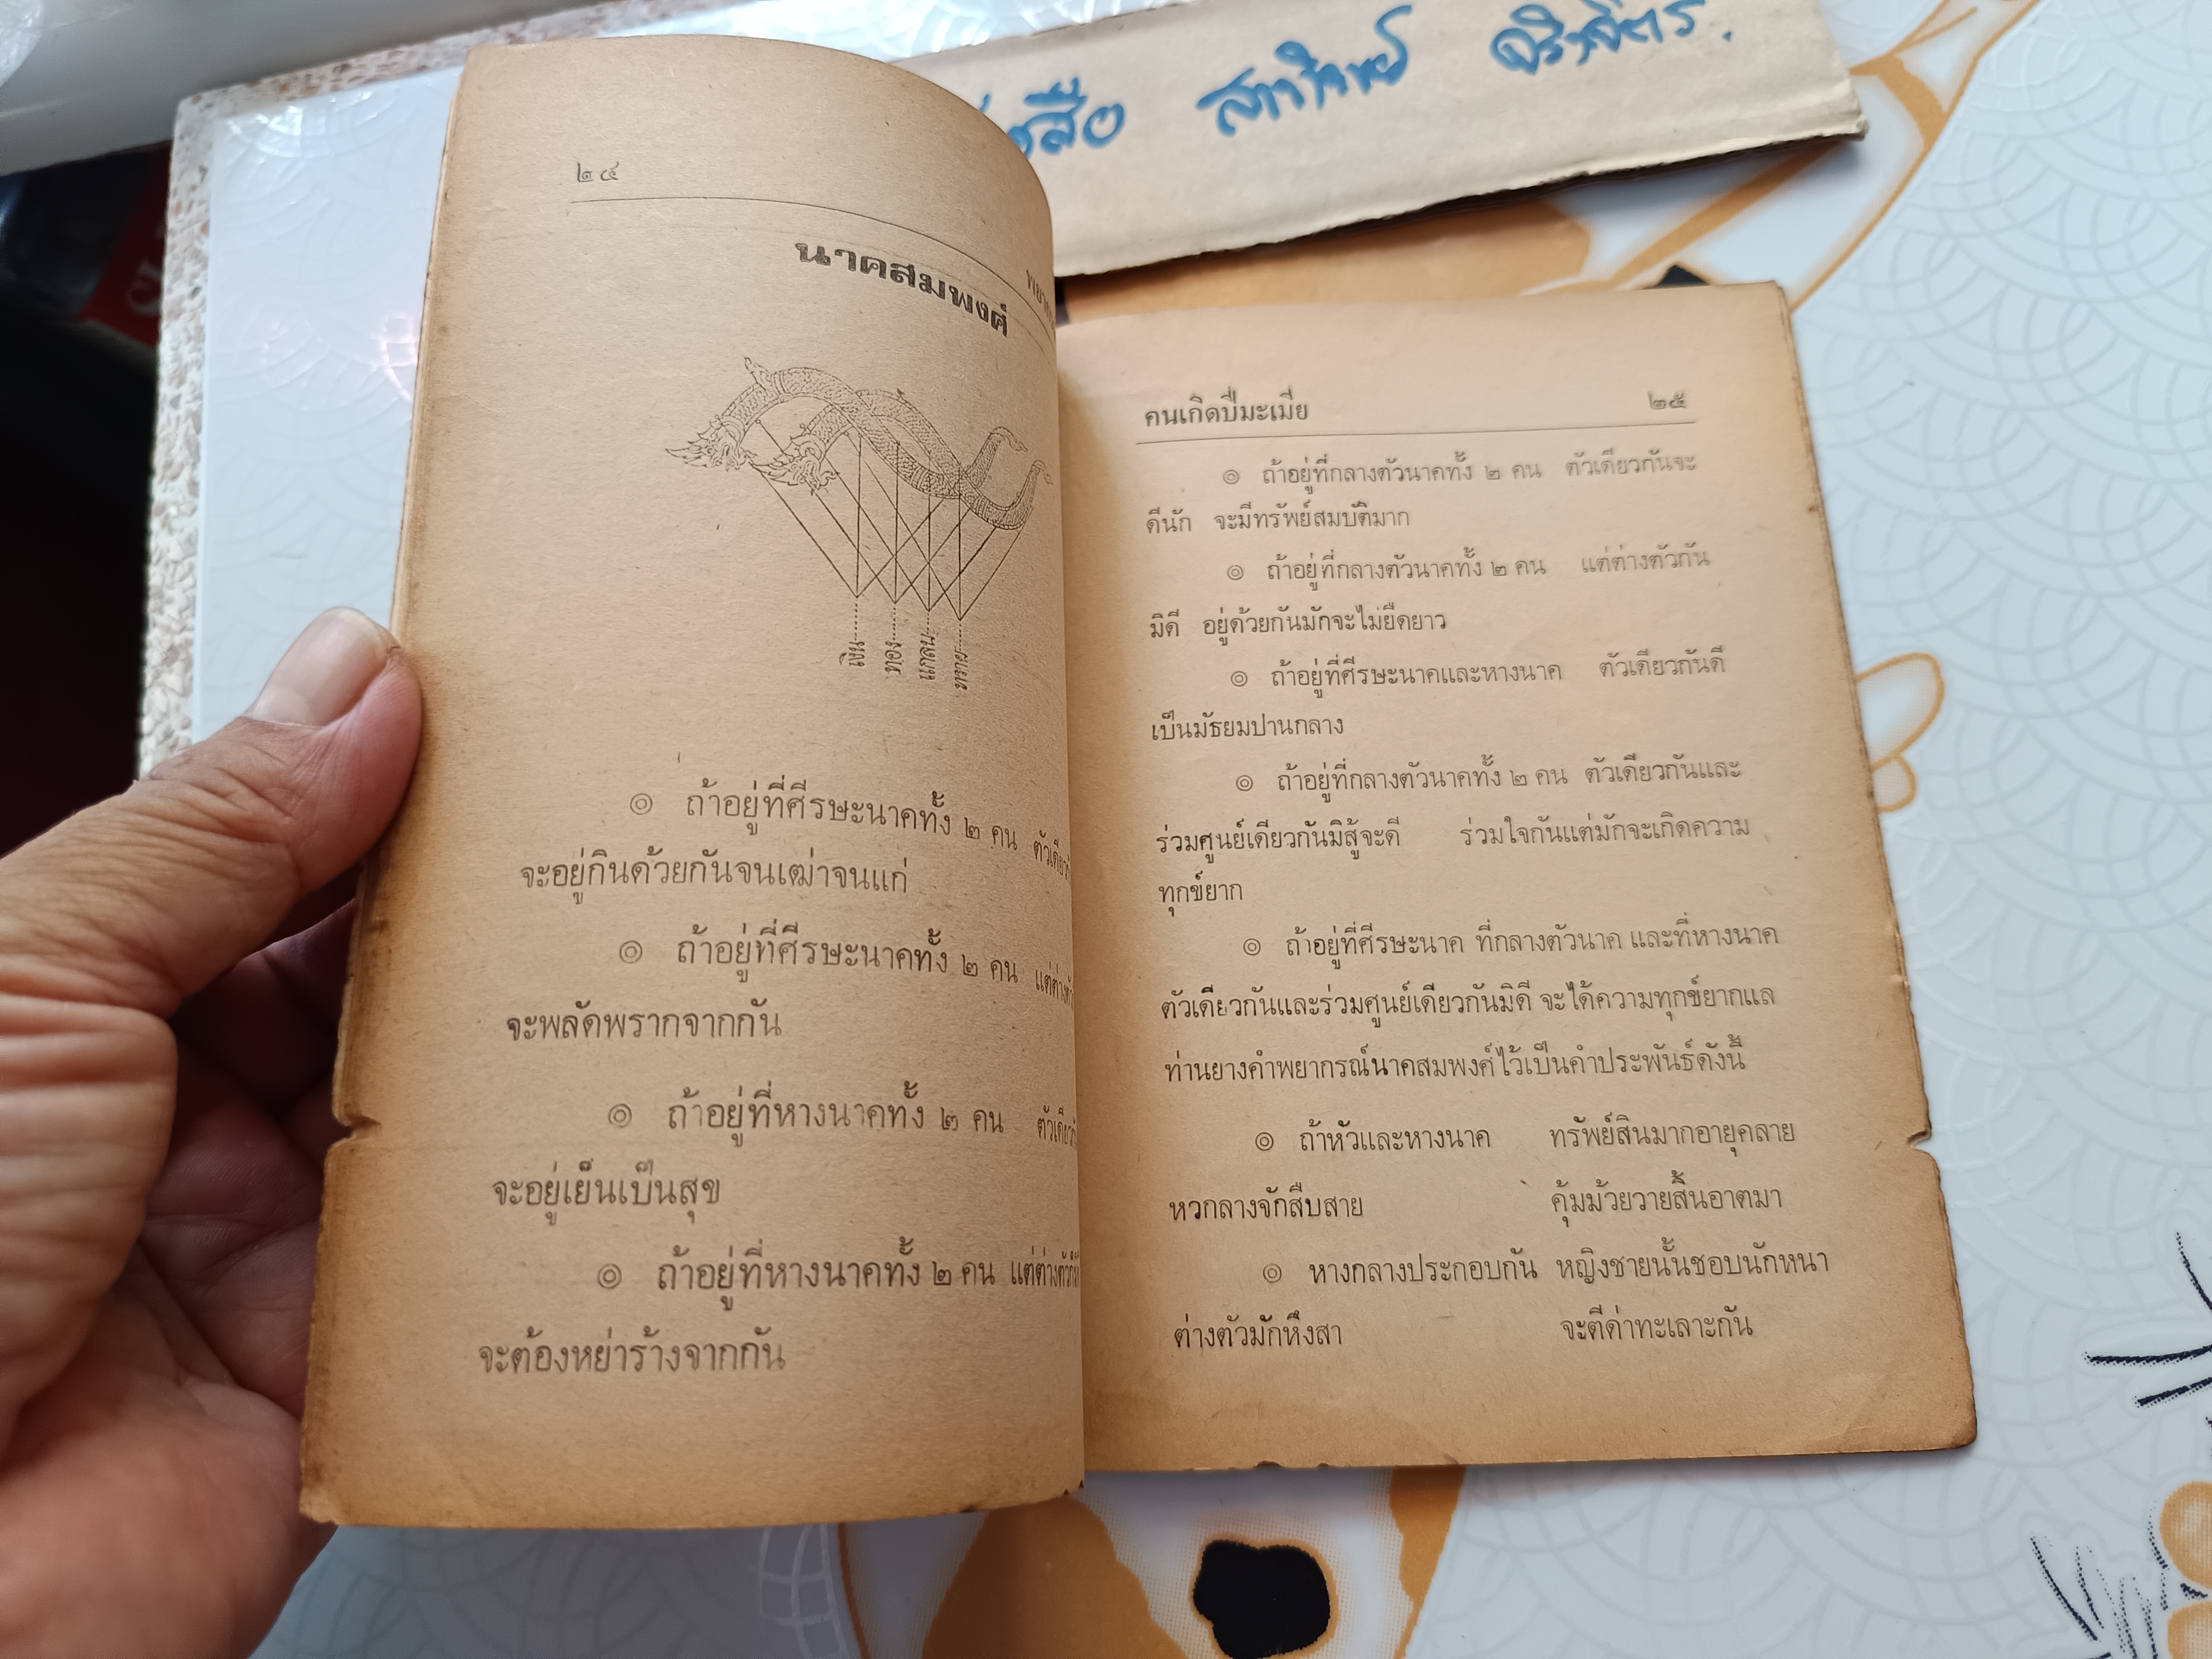 ๒๔
นาคสมพงศ์
เงิน
ทอง
แกลบ
ทราย
๏ ถ้าอยู่ที่ศีรษะนาคทั้ง ๒ คน
จะอยู่กินด้วยกันจนเฒ่าจนแก่
๏ ถ้าอยู่ที่ศีรษะนาคทั้ง ๒ คน
จะพลัดพรากจากกัน
๏ ถ้าอยู่ที่หางนาคทั้ง ๒ คน
จะอยู่เย็นเป็นสุข
๏ ถ้าอยู่ที่หางนาคทั้ง ๒ คน แต่ต่างตัวกัน
จะต้องหย่าร้างจากกัน
คนเกิดปีมะเมีย ๒๕
๏ ถ้าอยู่ที่กลางตัวนาคทั้ง ๒ คน ตัวเดียวกันจะ
ดีนัก จะมีทรัพย์สมบัติมาก
๏ ถ้าอยู่ที่กลางตัวนาคทั้ง ๒ คน แต่ต่างตัวกัน
มิดี อยู่ด้วยกันมักจะไม่ยืดยาว
๏ ถ้าอยู่ที่ศีรษะนาคและหางนาค ตัวเดียวกันดี
เป็นมัธยมปานกลาง
๏ ถ้าอยู่ที่กลางตัวนาคทั้ง ๒ คน ตัวเดียวกันและ
ร่วมศูนย์เดียวกันมิสู้จะดี ร่วมใจกันแต่มักจะเกิดความ
ทุกข์ยาก
๏ ถ้าอยู่ที่ศีรษะนาค ที่กลางตัวนาค และที่หางนาค
ตัวเดียวกันและร่วมศูนย์เดียวกันมิดี จะได้ความทุกข์ยากแล
ท่านยางคำพยากรณ์นาคสมพงศ์ไว้เป็นคำประพันธ์ดังนี้
๏ ถ้าหัวและหางนาค ทรัพย์สินมากอายุคลาย
หวกลางจักสืบสาย คุ้มม้วยวายสิ้นอาตมา
๏ หางกลางประกอบกัน หญิงชายนั้นชอบนักหนา
ต่างตัวมักหึงสา จะตีด่าทะเลาะกัน